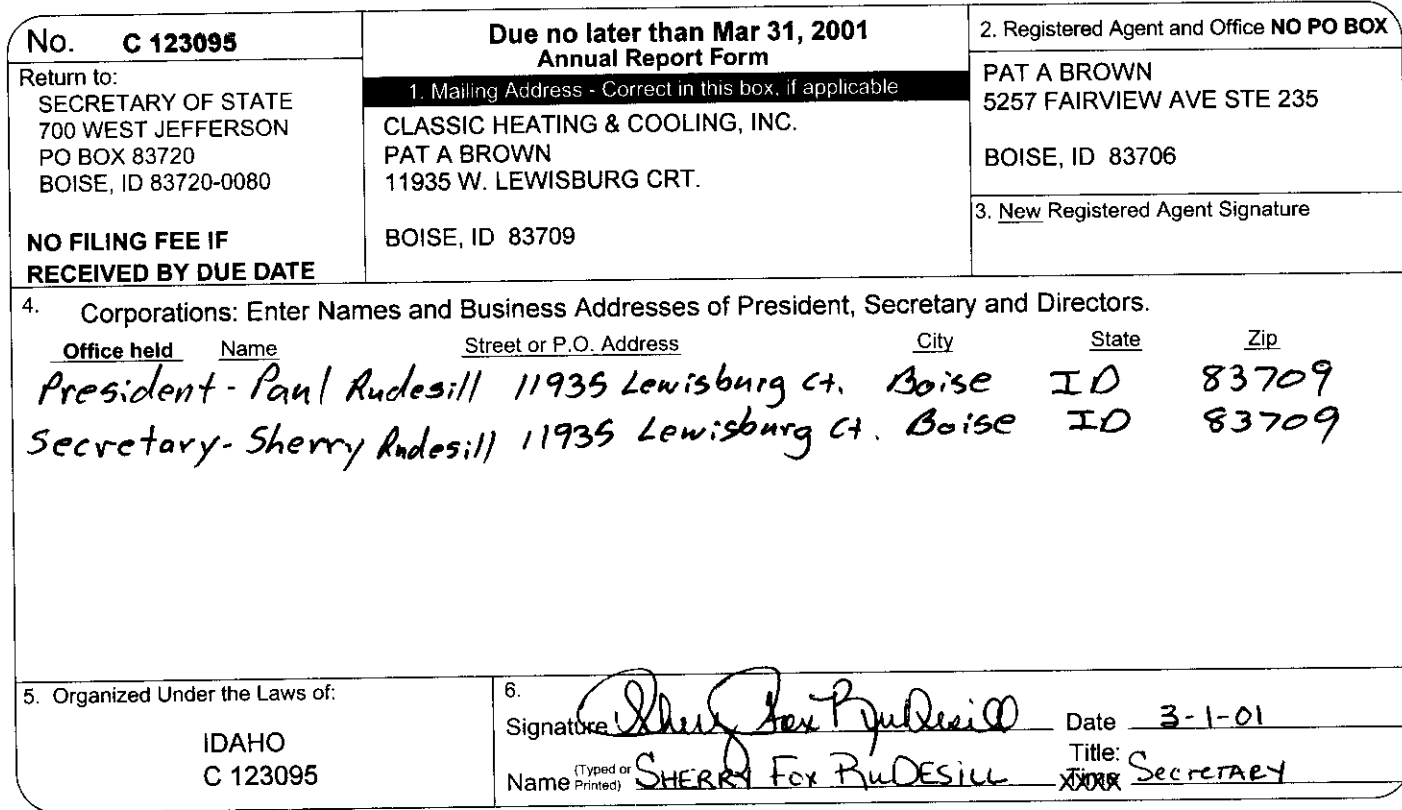 No. C 123095
Return to:
SECRETARY OF STATE
700 WEST JEFFERSON
PO BOX 83720
BOISE, ID 83720-0080
NO FILING FEE IF
RECEIVED BY DUE DATE
Due no later than Mar 31, 2001
Annual Report Form
1. Mailing Address - Correct in this box, if applicable
CLASSIC HEATING & COOLING, INC.
PAT A BROWN
11935 W. LEWISBURG CRT.
BOISE, ID 83709
2. Registered Agent and Office NO PO BOX
PAT A BROWN
5257 FAIRVIEW AVE STE 235
BOISE, ID 83706
3. New Registered Agent Signature
4. Corporations: Enter Names and Business Addresses of President, Secretary and Directors.
Office held Name Street or P.O. Address City State Zip
President - Paul Rudesill 11935 Lewisburg Ct. Boise ID 83709
Secretary - Sherry Rudesill 11935 Lewisburg Ct. Boise ID 83709
5. Organized Under the Laws of:
IDAHO
C 123095
6.
Signature Sherry Fox RuDesill Date 3-1-01
Name (Typed or Printed) SHERRY Fox RuDESILL Title: Secretary